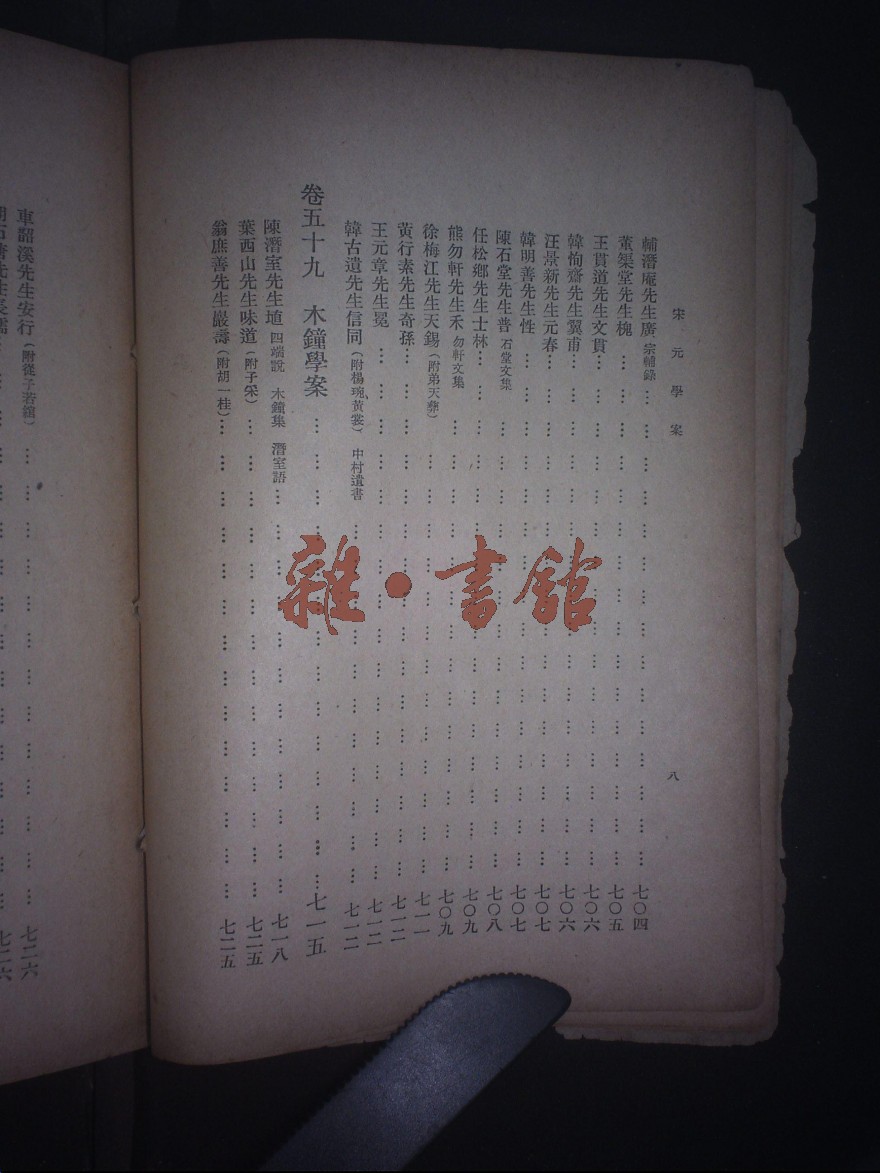 宋元學案
八
輔潛庵先生廣 宗輔錄 … 七〇四
董槃堂先生槐 … 七〇五
王貫道先生文貫 … 七〇六
韓恂齋先生翼甫 … 七〇六
汪景新先生元春 … 七〇七
韓明善先生性 … 七〇七
陳石堂先生普 石堂文集 … 七〇八
任松鄉先生士林 … 七〇九
熊勿軒先生禾 勿軒文集 … 七〇九
徐梅江先生天錫(附弟天彝) … 七一一
黃行素先生奇孫 … 七一二
王元章先生冕 … 七一二
韓古遺先生信同(附楊琬、黃裳) 中村遺書 … 七一二
卷五十九 木鐘學案 … 七一五
陳潛室先生埴 四端說 木鐘集 潛室語 … 七一八
葉西山先生味道(附子采) … 七二五
翁庶善先生嚴壽(附胡一桂) … 七二五
車韶溪先生安行(附從子若綰) … 七二六
先生長孺 … 七二六
雜·書館